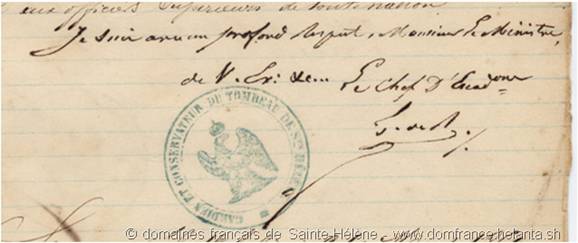 aux officiers supérieurs de toute nation
Je suis avec un profond Respect, Monsieur Le Ministre,
de V. Ex: Le Chef D'Escad
GARDIEN ET CONSERVATEUR DU TOMBEAU DE STE HÉLÈNE
© domaines français de Sainte-Hélène : www.domfrance.helanta.sh